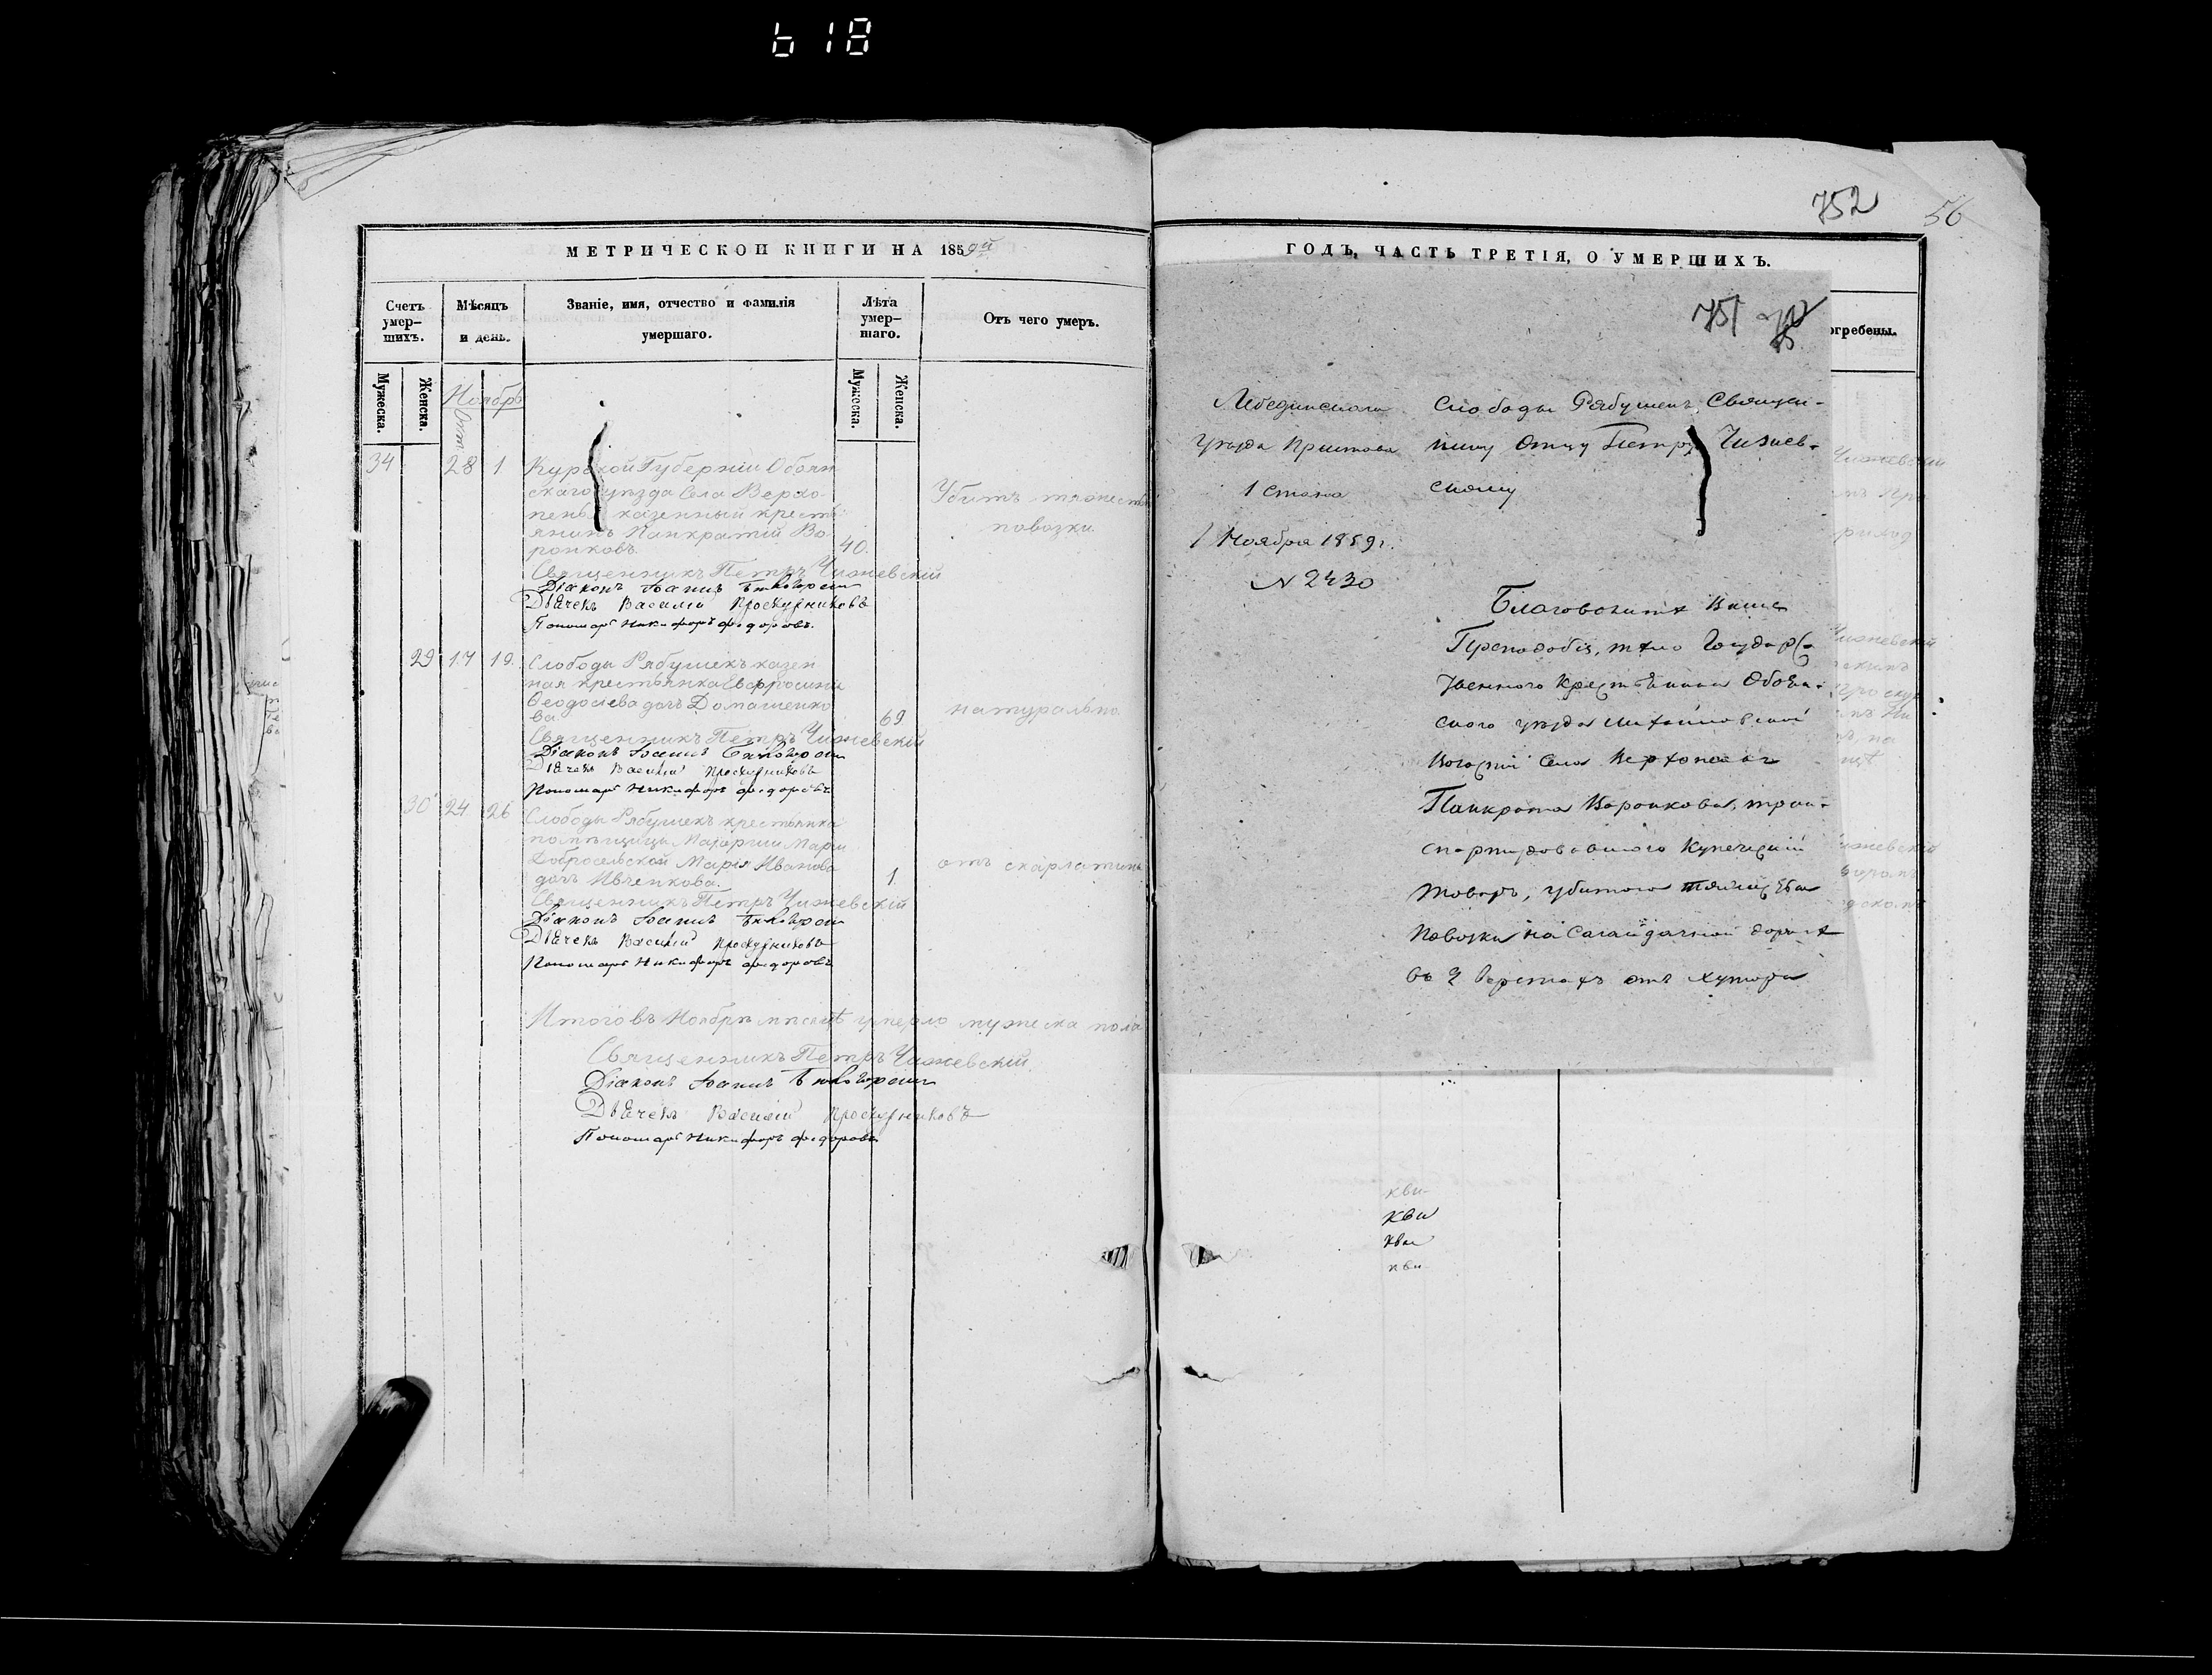 618
МЕТРИЧЕСКОЙ КНИГИ НА 1859й
Счетъ умер-шихъ.
Мѣсяцъ и день.
Званіе, имя, отчество и фамилія умершаго.
Лѣта умер-шаго.
Отъ чего умеръ.
Мужеска.
Женска.
Ноябрь
Окт.
Мужеска.
Женска.
34 28 1 Курской Губерніи Обоян
скаго уѣзда Села Верхо-
пенья казенный кресть
янинъ Панкратій Во
ронковъ. 40.
Убитъ тяжестью
повозки.
Священникъ Петръ Чижевскій
Діаконъ Іоаннъ
Дьячекъ Василій Проскурниковъ
Пономарь Никифоръ Федоровъ.
29 17 19. Слободы Рябушекъ казен
ная крестьянка Евфросинія
Ѳеодосіева дочь Домашенко
ва. 69 натурально
Священникъ Петръ Чижевскій
Діаконъ Іоаннъ
Дьячекъ Василій Проскурниковъ
Пономарь Никифоръ Федоровъ
30 24 26 Слободы Рябушекъ крестьянка
помѣщицы Маіорши Маріи
Добросельской Марія Иванова
дочь Ивченкова. 1. отъ скарлатины
Священникъ Петръ Чижевскій
Діаконъ Іоаннъ
Дьячекъ Василій Проскурниковъ
Пономарь Никифоръ Федоровъ
Итого въ Ноябрѣ мѣсяцѣ умерло мужеска пола
Священникъ Петръ Чижевскій
Діаконъ Іоаннъ
Дьячекъ Василій Проскурниковъ
Пономарь Никифоръ Федоровъ
752 56
ГОДЪ, ЧАСТЬ ТРЕТІЯ, О УМЕРШИХЪ.
751
огребены.
Лебединскаго
Уѣзда Пристава
1 Стана
1 Ноября 1859 г.
N 2430
Слободы Рябушекъ Священ-
нику Отцу Петру Чижев-
скому
Благоволите Ваше
Преподобіе, тѣло Государс
твеннаго Крестьянина Обоян-
скаго уѣзда Михайловской
Волости Села Верхопенья
Панкрата Воронкова, тран-
спортировавшаго Купеческій
товаръ, убитаго тяжестью
повозки на Сагайдачной дорогѣ
въ 2 верстахъ отъ хутора
Чижевскій
кви
кви
кви
кви